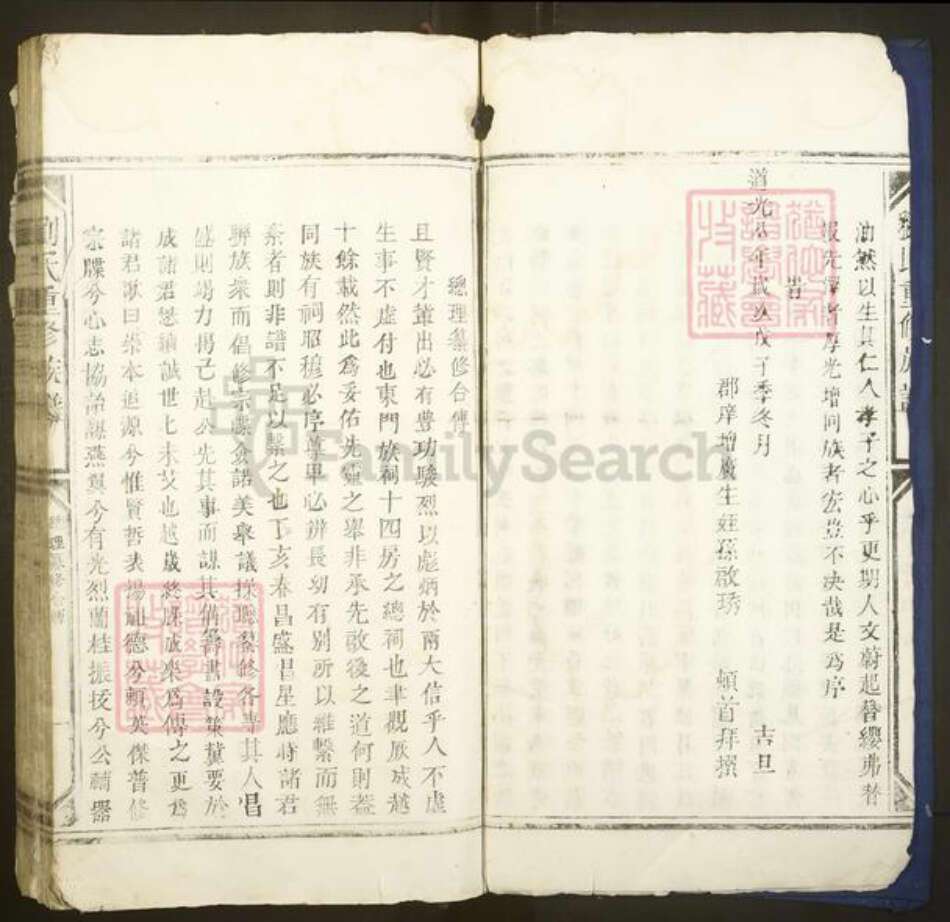 油然以生其仁人孝子之心乎更期人文蔚起簪纓弗替
報先澤者厚光增同族者宏豈不决哉是爲序
皆
道光八年歲次戊子季冬月 吉旦
郡庠增廣生姪孫啟琇 頓首拜撰
總理纂修合傳
且賢才輩出必有豐功駿烈以彪炳於兩大信乎人不虛
生事不虛付也東門族祠十四房之總祠也聿觀厥成越
十餘載然此爲妥佑先靈之舉非承先啟後之道何則蓋
同族有祠昭穆必序尊卑必辨長幼有別所以維繫而無
紊者則非譜不足以繫之也丁亥春昌盛昌星應時諸君
聯族衆而倡修宗譜僉諾美舉議採總纂修各專其人昌
盛則竭力揭己赴公先其事而謀其備籌畫設策冀要於
成諸君懋績誠世上未艾也越歲終厥成樂爲傳之更爲
諸君歌曰崇本追源兮惟賢哲表揚祖德兮賴英傑普修
宗牒兮心志協詒謀燕翼兮有光烈蘭桂振拔兮公輔器
劉氏重修族譜
總理纂修合傳
劉氏重修族譜
FamilySearch